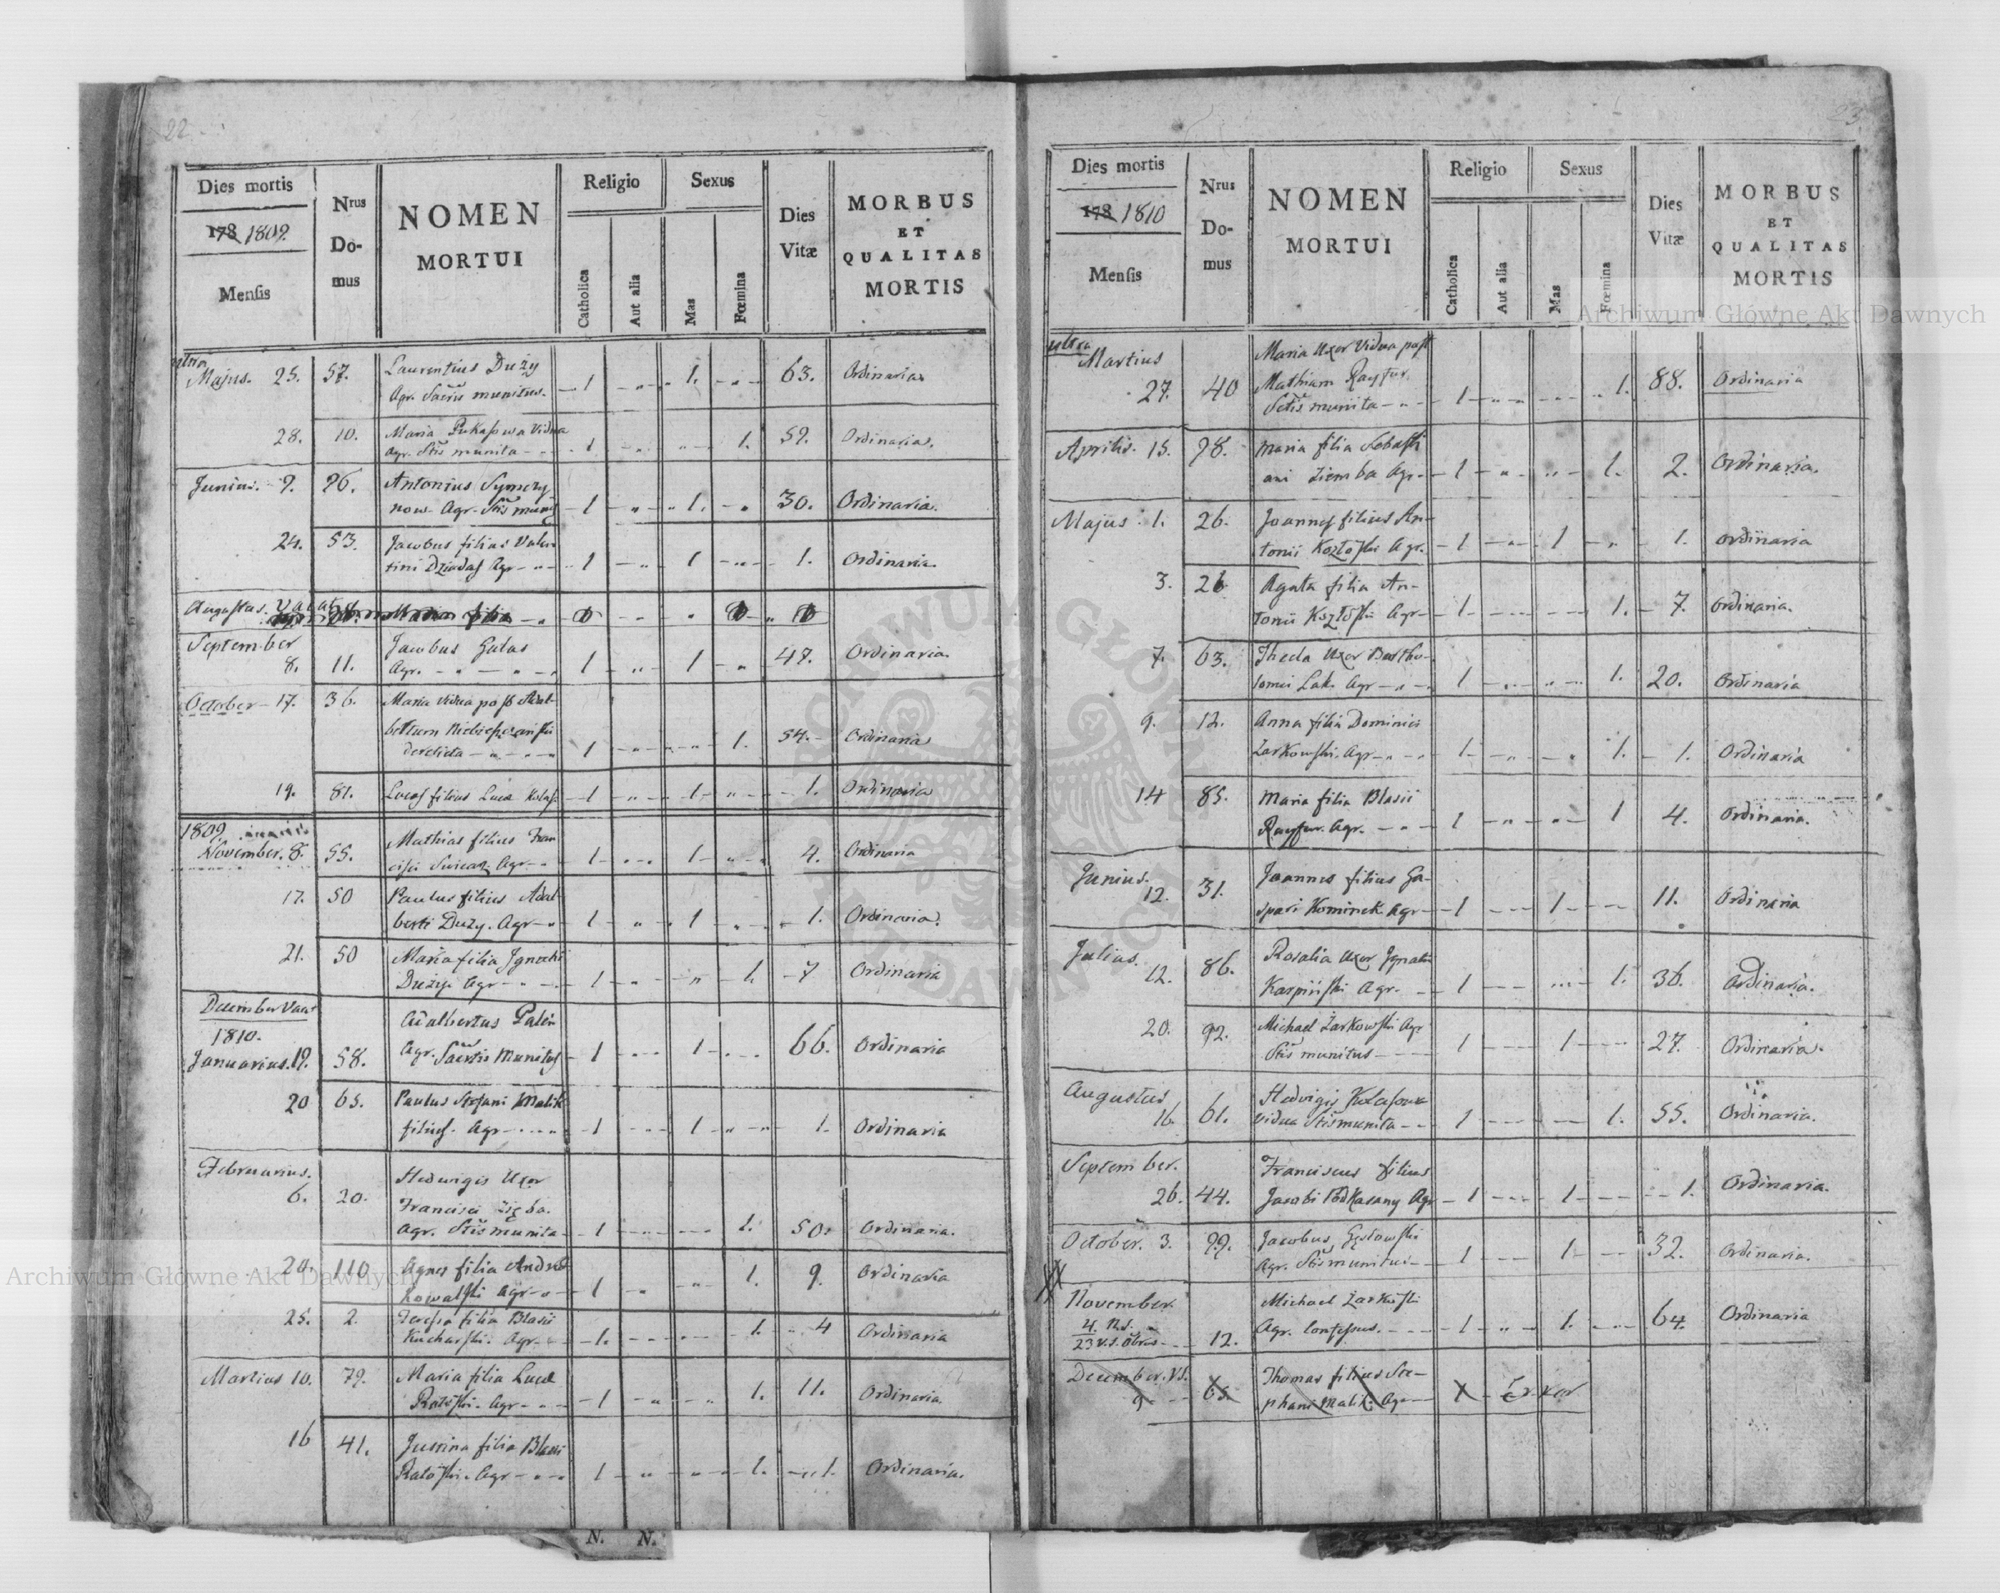 22.
Dies mortis
178 1809.
Mensis
Nrus
Do-
mus
NOMEN
MORTUI
Religio
Catholica
Aut alia
Sexus
Mas
Fœmina
Dies
Vitæ
MORBUS
ET
QUALITAS
MORTIS
ultra
Majus. 25. 57. Laurentius Duży
Agr. munitus. 1 1. 63. Ordinaria
28. 10. Maria Vidua
Agr. Stis munita 1 1. 52. Ordinaria.
Junius. 9. 96. Antonius Symczy-
now Agr. Stis munit 1 1. 30. Ordinaria.
24. 53. Jacobus filius Valen-
tini Dziadas Agr 1 1 1. Ordinaria.
Augustus. Vacat
Maria filia
September
8. 11. Jacobus Galas
Agr. 1 1 47. Ordinaria.
October 17. 36. Maria vidua post Adal-
bertum
derelicta 1 1. 54. Ordinaria
19. 81. Lucas filius Luca 1 1 1. Ordinaria
1809.
November. 8. 55. Mathias filius Fran-
cisci Agr. 1 1 4. Ordinaria
17. 50 Paulus filius Adal-
berti Duży. Agr 1 1 1. Ordinaria.
21. 50 Maria filia Ignatii
Duży Agr 1 1. 7 Ordinaria
December Vacat
1810.
Januarius. 19. 58. Adalbertus
Agr. munitus 1 1 66. Ordinaria
20 65. Paulus Stefani Malik
filius. Agr 1 1 1. Ordinaria
Februarius.
6. 20. Hedwigis Uxor
Francisci Zięba.
Agr. Stis munita 1 1. 50. Ordinaria.
20. 110 Agnes filia Andrea
Kowalski Agr 1 1. 9. Ordinaria
25. 2. Teressa filia Blasii
Kucharski. Agr 1. 1. 4 Ordinaria
Martius 10. 79. Maria filia Lucæ
Ratoski. Agr 1 1. 11. Ordinaria.
16 41. Justina filia Blasii
Ratoski. Agr 1 1. 1. Ordinaria.
N. N.
23.
Dies mortis
178 1810
Mensis
Nrus
Do-
mus
NOMEN
MORTUI
Religio
Catholica
Aut alia
Sexus
Mas
Fœmina
Dies
Vitæ
MORBUS
ET
QUALITAS
MORTIS
ultra
Martius
27. 40 Maria Uxor Vidua post
Mathiam Rayfur.
Stis munita 1 1. 88. Ordinaria
Aprilis. 15. 98. Maria filia Sebasti
ani Ziemba Agr 1 1. 2. Ordinaria.
Majus. 1. 26. Joannes filius An-
tonii Kozłoski Agr. 1 1 1. Ordinaria
3. 26 Agata filia An-
tonii Kozłoski Agr 1 1. 7. Ordinaria.
7. 63. Thecla Uxor Bartho-
lomei Lak. Agr 1 1. 20. Ordinaria
9. 12. Anna filia Dominici
Żarkowski. Agr 1 1. 1. Ordinaria
14 85. Maria filia Blasii
Rayfur. Agr. 1 1 4. Ordinaria.
Junius.
12. 31. Joannes filius Ga-
spari Kominek Agr 1 1 11. Ordinaria
Julius.
12. 86. Rosalia Uxor Ignatii
Karpiński Agr. 1 1. 36. Ordinaria.
20. 92. Michael Żarkowski Agr
Stis munitus 1 1 27. Ordinaria.
Augustus
16. 61. Hedvigis
vidua Stis munita 1 1. 55. Ordinaria.
September.
26. 44. Franciscus filius
Jacobi Podkasany Agr 1 1 1. Ordinaria.
October. 3. 99. Jacobus
Agr. Stis munitus 1 1. 32. Ordinaria.
November.
4. n.s.
23 v.s. 8bris 12. Michael Żarkoski
Agr. Confessus. 1 1. 64. Ordinaria
December. v.s.
9 65. Thomas filius Ste-
phani Malik. Agr 1 Error
Archiwum Główne Akt Dawnych
Archiwum Główne Akt Dawnych
ARCHIWUM GŁÓWNE AKT DAWNYCH